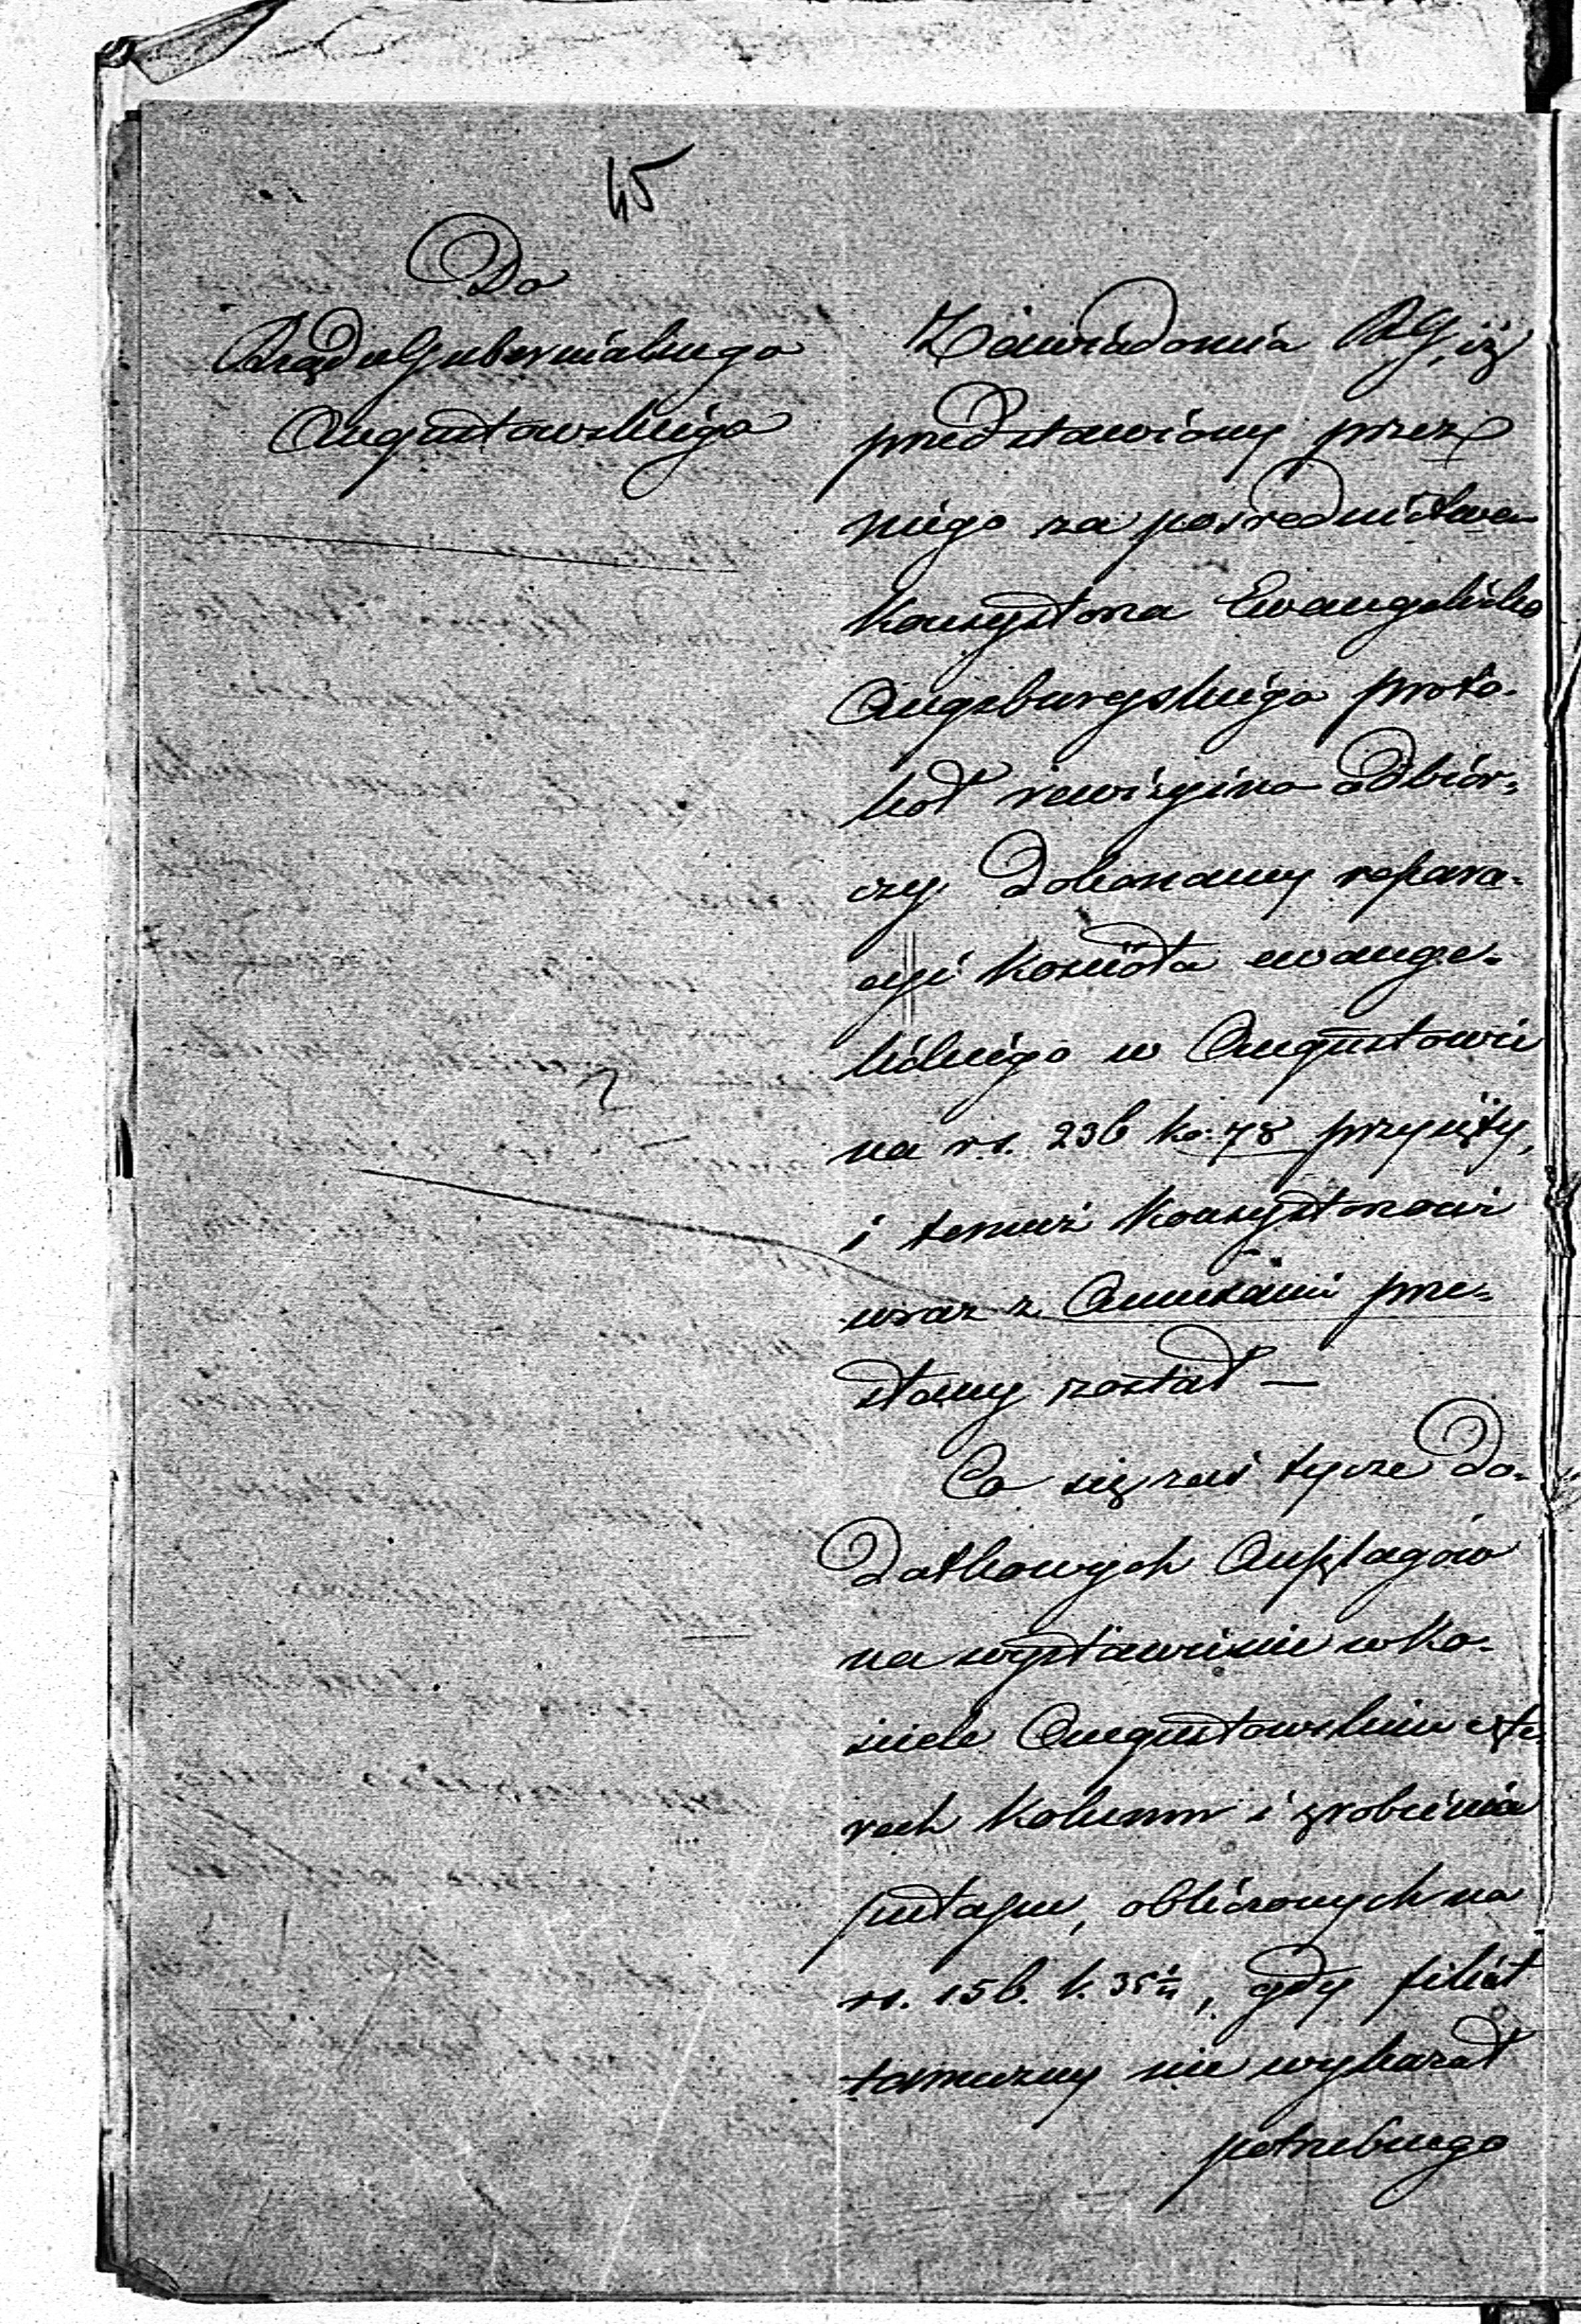 45
Do
Rządu Gubernialnego
Augustowskiego
Zawiadomia RG, iż
przedstawiony przez
niego za pośrednictwem
Konsystorza Ewangelicko
Augsburgskiego proto-
kół rewizyino odbiór-
czy dokonanej repara-
cyi kościoła ewange-
lickiego w Augustowie
na rs. 236 ko. 78 przyjęty,
i temuż Konsystorzowi
wraz z Annexami prze-
słany został —
Co się zaś tycze do-
datkowych Anszlagów
na wystawienie w Ko-
ściele Augustowskim czte-
rech Kolumn i zrobienia
sufitu, obliczonych na
rs. 156. k. 35½, gdy filiał
tameczny nie wykazał
potrzebnego